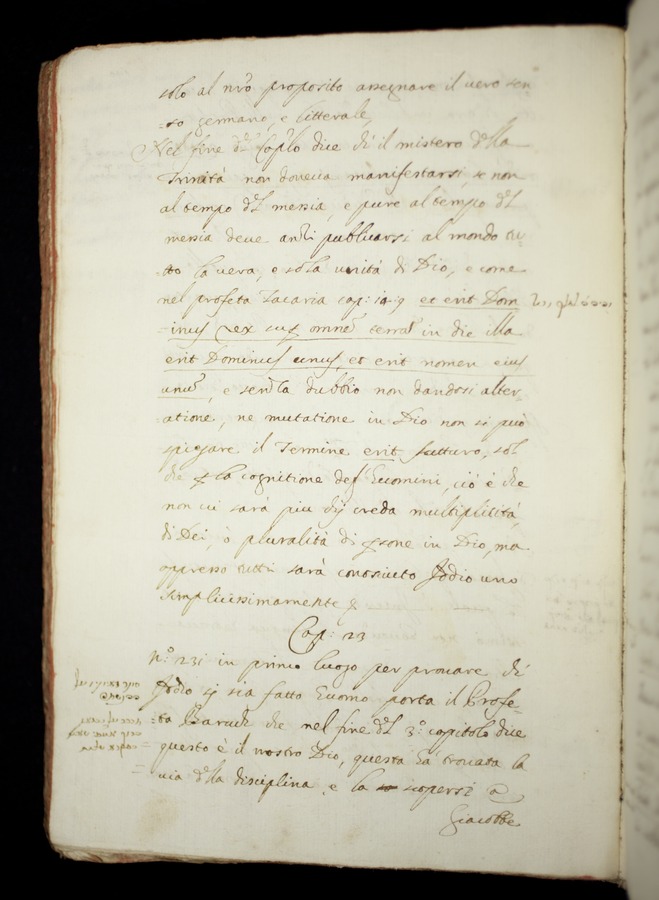 solo al nrō proposito assegnare il vero sen
=so germano, e litterale,
Nel fine dl Cap̃lo dice ch̃ il mistero dlla
Trinità non doveva manifestarsi, se non
al tempo dl messia, e pure al tempo dl
messia deve anzi publicarsi al mondo tu
=tto la vera, e sola unità di Dio, e come
nel profeta Zacaria cap: 14.9 et erit Dom
=inus rex sup omnē terrā in die illa
erit Dominus unus, et erit nomen eius
unū, e senza dubbio non dandosi alter,
atione, ne mutatione in Dio non si può
spiegare il Termine erit futturo, sol
che p la cognitione degl Euomini, ciò è che
non vi sarà più chi creda multiplicità,
di Dei, ò pluralità di psone in Dio, ma
appresso tutti sarà conosciuto Iddio uno
simplicissimamente
Cap: 23
N.º 231 in primo luogo per provare ch̃
Iddio si sia fatto Euomo porta il Profe=
=ta Baruch che nel fine dl 3.º capitolo dice
questo è il nostro Dio, questa hà trovata la
via dlla disciplina, e la scopersi a
Giacobbe